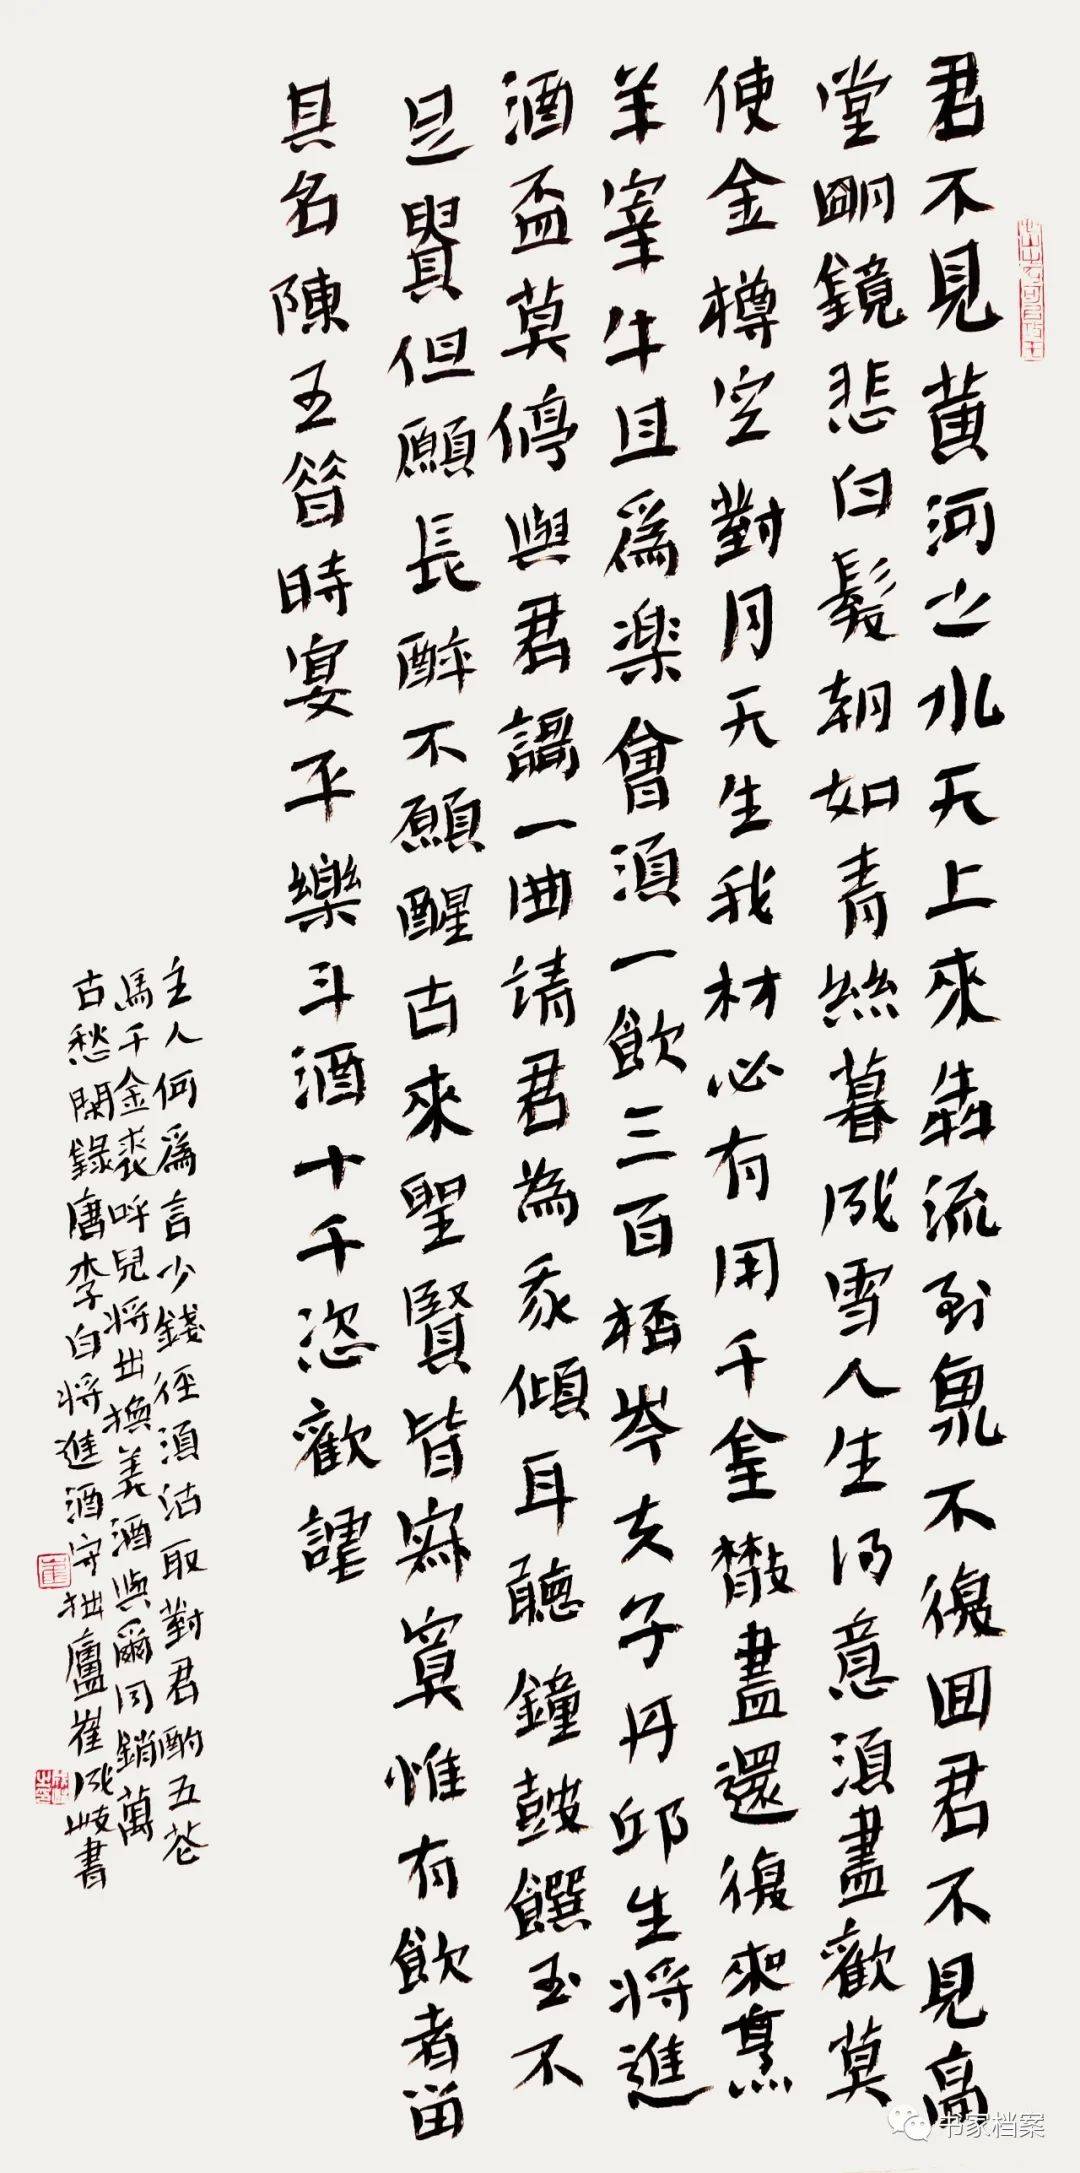 君不見黃河之水天上來犇流到東不復回君不見高
堂明鏡悲白髮朝如青絲暮成雪人生得意須盡歡莫
使金樽空對月天生我材必有用千金散盡還復來烹
羊宰牛且爲樂會須一飲三百桮岑夫子丹邱生將進
酒盃莫停與君謌一曲請君為我傾耳聽鐘鼓饌玉不
足貴但願長醉不願醒古來聖賢皆寂寞惟有飲者留
其名陳王昔時宴平樂斗酒十千恣歡謔
主人何爲言少錢徑須沽取對君酌五花
馬千金裘呼兒將出換美酒與爾同銷萬
古愁閑錄唐李白將進酒守拙廬崔成岐書
书家档案